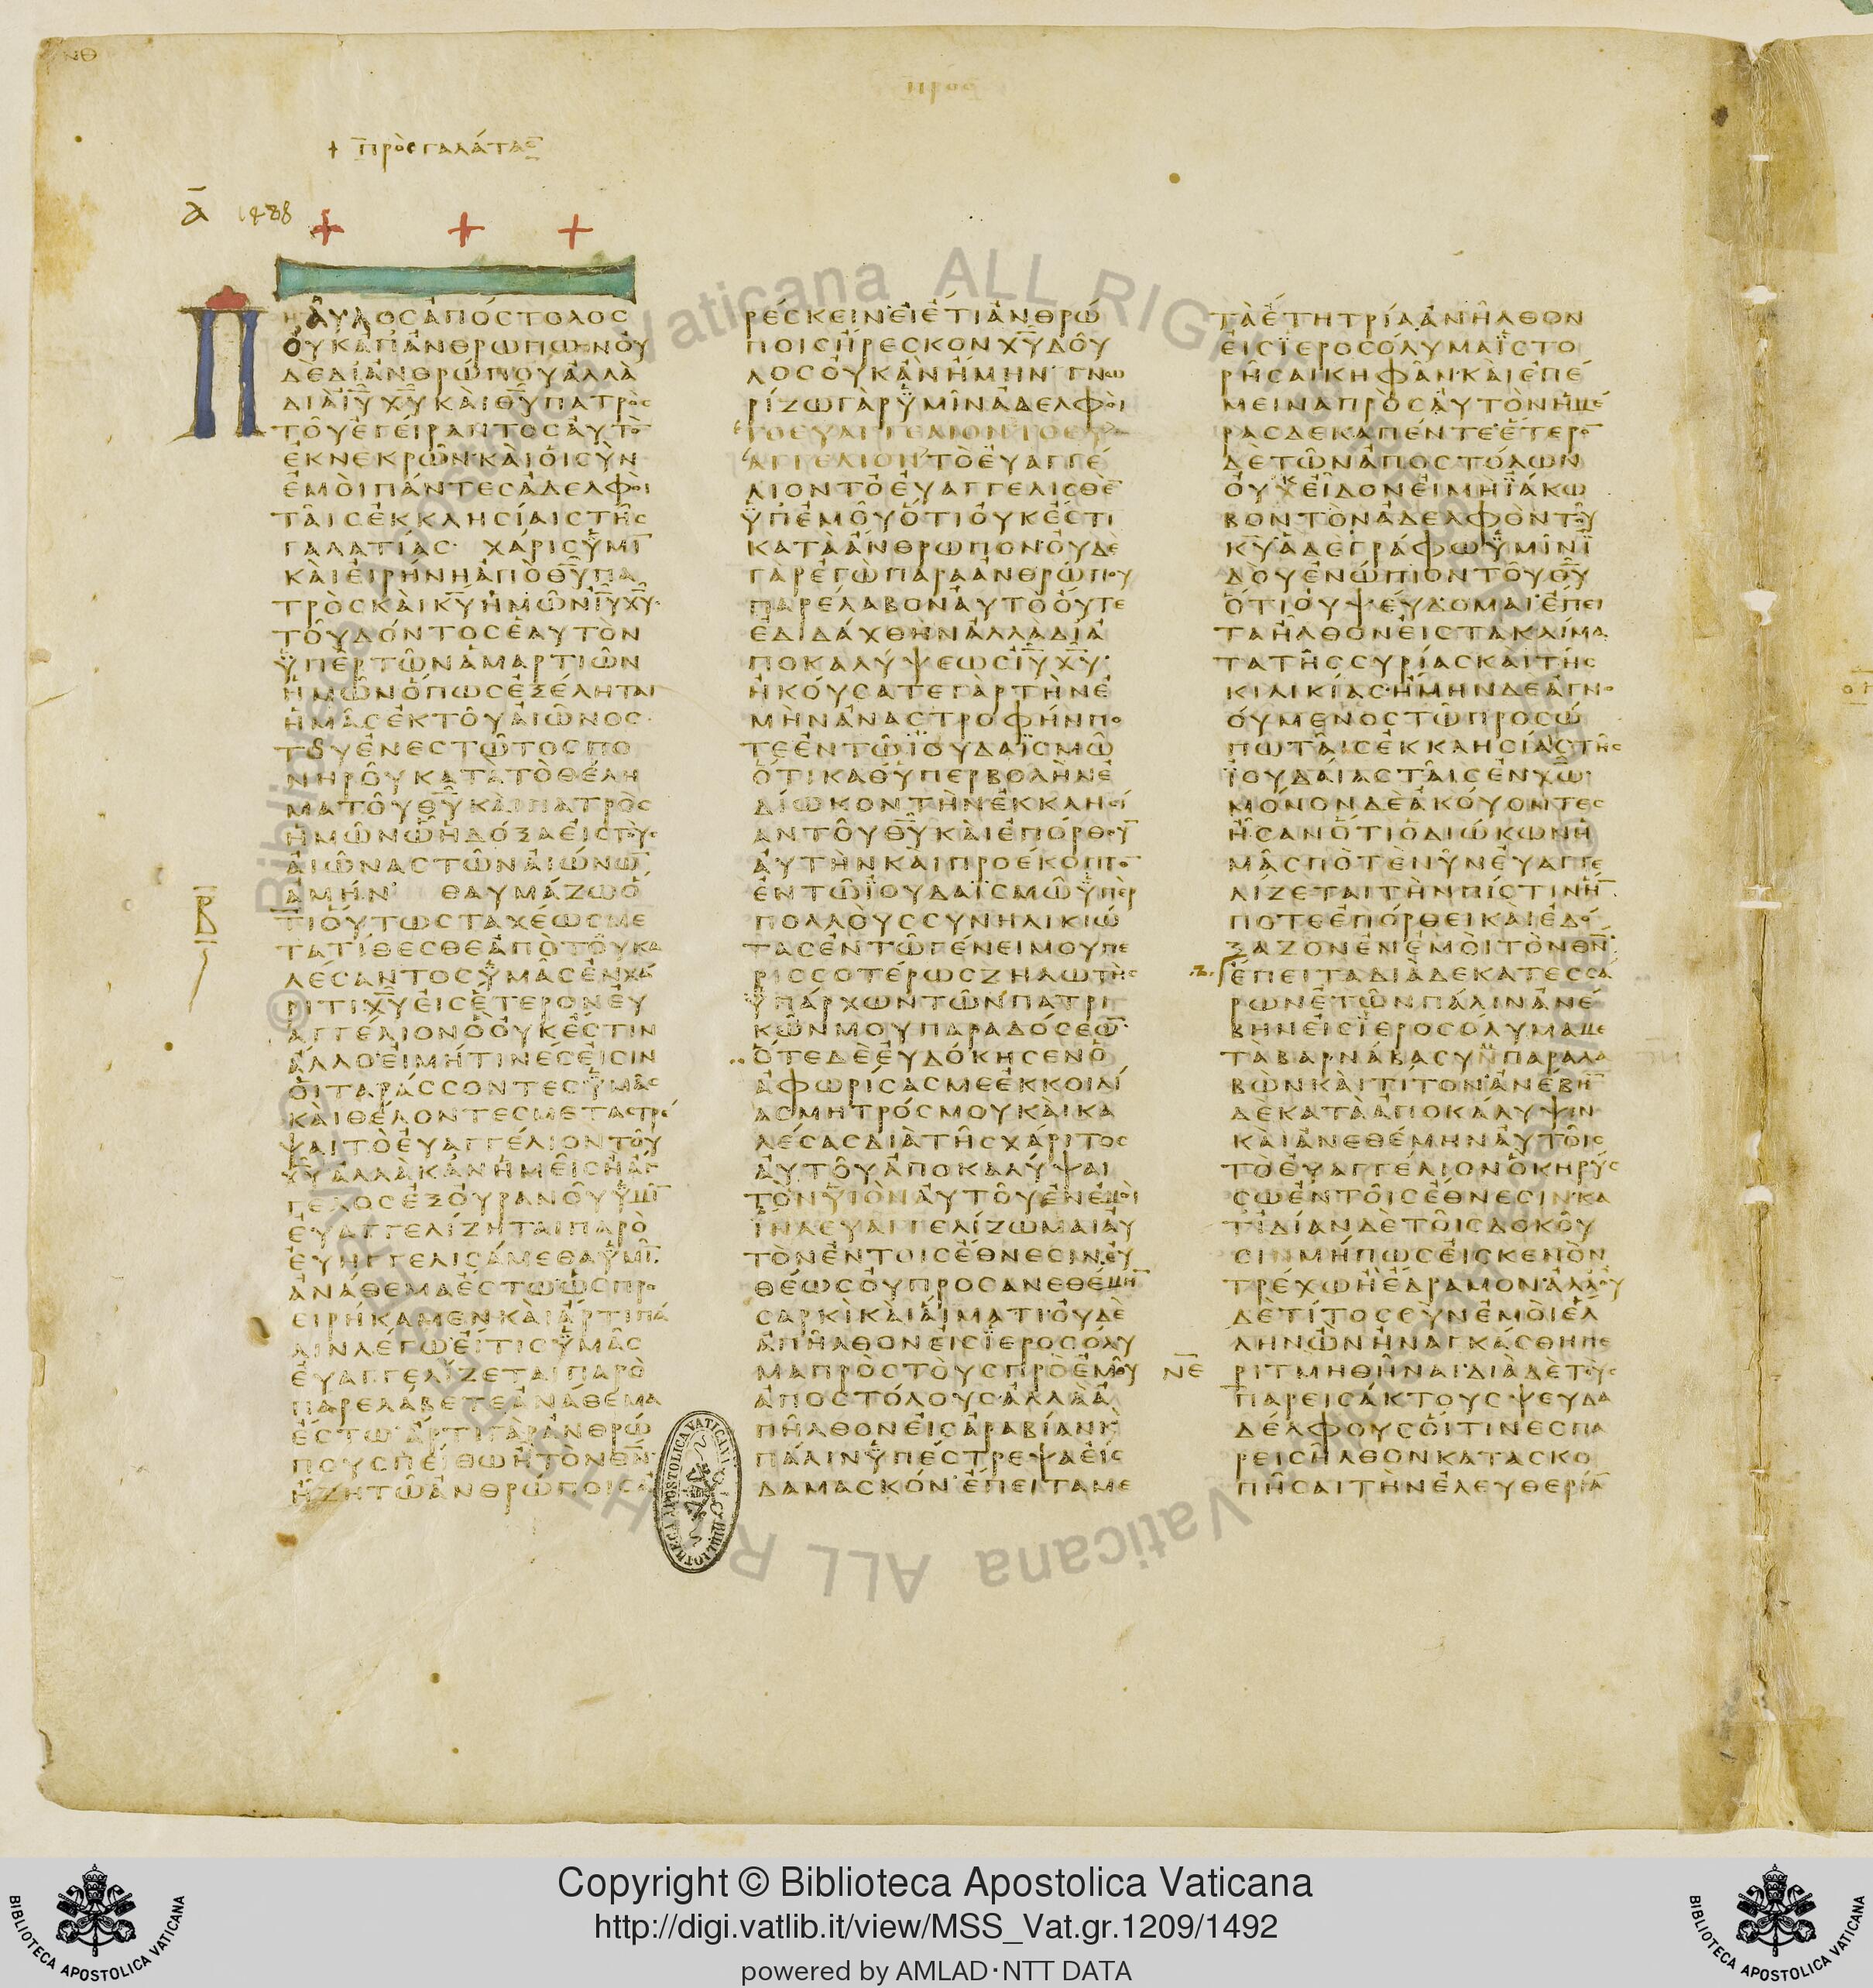 ΝΘ
+ πρὸσ γαλάτασ
Α 1488
+ + +
Π
ΠΑΥΛΟΣΑΠΟΣΤΟΛΟΣ
ΟΥΚΑΠΑΝΘΡΩΠΩΝΟΥ
ΔΕΔΙΑΝΘΡΩΠΟΥΑΛΛΑ
ΔΙΑΙΥΧΥΚΑΙΘΥΠΑΤΡΟΣ
ΤΟΥΕΓΕΙΡΑΝΤΟΣΑΥΤΟ
ΕΚΝΕΚΡΩΝΚΑΙΟΙΣΥΝ
ΕΜΟΙΠΑΝΤΕΣΑΔΕΛΦΟΙ
ΤΑΙΣΕΚΚΛΗΣΙΑΙΣΤΗΣ
ΓΑΛΑΤΙΑΣ ΧΑΡΙΣΥΜΙ
ΚΑΙΕΙΡΗΝΗΑΠΟΘΥΠΑ
ΤΡΟΣΚΑΙΚΥΗΜΩΝΙΥΧΥ
ΤΟΥΔΟΝΤΟΣΕΑΥΤΟΝ
ΥΠΕΡΤΩΝΑΜΑΡΤΙΩΝ
ΗΜΩΝΟΠΩΣΕΞΕΛΗΤΑΙ
ΗΜΑΣΕΚΤΟΥΑΙΩΝΟΣ
ΤΟΥΕΝΕΣΤΩΤΟΣΠΟ
ΝΗΡΟΥΚΑΤΑΤΟΘΕΛΗ
ΜΑΤΟΥΘΥΚΑΙΠΑΤΡΟΣ
ΗΜΩΝΩΗΔΟΞΑΕΙΣΤΟΥΣ
ΑΙΩΝΑΣΤΩΝΑΙΩΝΩ
ΑΜΗΝ ΘΑΥΜΑΖΩΟ
Β
ΤΙΟΥΤΩΣΤΑΧΕΩΣΜΕ
ΤΑΤΙΘΕΣΘΕΑΠΟΤΟΥΚΑ
ΛΕΣΑΝΤΟΣΥΜΑΣΕΝΧΑ
ΡΙΤΙΧΥΕΙΣΕΤΕΡΟΝΕΥ
ΑΓΓΕΛΙΟΝΟΟΥΚΕΣΤΙΝ
ΑΛΛΟΕΙΜΗΤΙΝΕΣΕΙΣΙΝ
ΟΙΤΑΡΑΣΣΟΝΤΕΣΥΜΑΣ
ΚΑΙΘΕΛΟΝΤΕΣΜΕΤΑΣΤΡΕ
ΨΑΙΤΟΕΥΑΓΓΕΛΙΟΝΤΟΥ
ΧΥΑΛΛΑΚΑΝΗΜΕΙΣΗΑΓ
ΓΕΛΟΣΕΞΟΥΡΑΝΟΥΥΜΙ
ΕΥΑΓΓΕΛΙΖΗΤΑΙΠΑΡΟ
ΕΥΗΓΓΕΛΙΣΑΜΕΘΑΥΜΙ
ΑΝΑΘΕΜΑΕΣΤΩΩΣΠΡΟ
ΕΙΡΗΚΑΜΕΝΚΑΙΑΡΤΙΠΑ
ΛΙΝΛΕΓΩΕΙΤΙΣΥΜΑΣ
ΕΥΑΓΓΕΛΙΖΕΤΑΙΠΑΡΟ
ΠΑΡΕΛΑΒΕΤΕΑΝΑΘΕΜΑ
ΕΣΤΩΑΡΤΙΓΑΡΑΝΘΡΩ
ΠΟΥΣΠΕΙΘΩΗΤΟΝΘΝ
ΗΖΗΤΩΑΝΘΡΩΠΟΙΣΑ
ΡΕΣΚΕΙΝΕΙΕΤΙΑΝΘΡΩ
ΠΟΙΣΗΡΕΣΚΟΝΧΥΔΟΥ
ΛΟΣΟΥΚΑΝΗΜΗΝΓΝΩ
ΡΙΖΩΓΑΡΥΜΙΝΑΔΕΛΦΟΙ
ΤΟΕΥΑΓΓΕΛΙΟΝΤΟΕΥ
ΑΓΓΕΛΙΟΝΤΟΕΥΑΓΓΕ
ΛΙΟΝΤΟΕΥΑΓΓΕΛΙΣΘΕ
ΥΠΕΜΟΥΟΤΙΟΥΚΕΣΤΙ
ΚΑΤΑΑΝΘΡΩΠΟΝΟΥΔΕ
ΓΑΡΕΓΩΠΑΡΑΑΝΘΡΩΠΟΥ
ΠΑΡΕΛΑΒΟΝΑΥΤΟΟΥΤΕ
ΕΔΙΔΑΧΘΗΝΑΛΛΑΔΙΑ
ΠΟΚΑΛΥΨΕΩΣΙΥΧΥ
ΗΚΟΥΣΑΤΕΓΑΡΤΗΝΕ
ΜΗΝΑΝΑΣΤΡΟΦΗΝΠΟ
ΤΕΕΝΤΩΙΟΥΔΑΙΣΜΩ
ΟΤΙΚΑΘΥΠΕΡΒΟΛΗΝΕ
ΔΙΩΚΟΝΤΗΝΕΚΚΛΗΣΙ
ΑΝΤΟΥΘΥΚΑΙΕΠΟΡΘΟΥ
ΑΥΤΗΝΚΑΙΠΡΟΕΚΟΠΤΟ
ΕΝΤΩΙΟΥΔΑΙΣΜΩΥΠΕΡ
ΠΟΛΛΟΥΣΣΥΝΗΛΙΚΙΩ
ΤΑΣΕΝΤΩΓΕΝΕΙΜΟΥΠΕ
ΡΙΣΣΟΤΕΡΩΣΖΗΛΩΤΗΣ
ΥΠΑΡΧΩΝΤΩΝΠΑΤΡΙ
ΚΩΝΜΟΥΠΑΡΑΔΟΣΕΩ
ΟΤΕΔΕΕΥΔΟΚΗΣΕΝΟ
ΑΦΩΡΙΣΑΣΜΕΕΚΚΟΙΛΙ
ΑΣΜΗΤΡΟΣΜΟΥΚΑΙΚΑ
ΛΕΣΑΣΔΙΑΤΗΣΧΑΡΙΤΟΣ
ΑΥΤΟΥΑΠΟΚΑΛΥΨΑΙ
ΤΟΝΥΙΟΝΑΥΤΟΥΕΝΕΜΟΙ
ΙΝΑΕΥΑΓΓΕΛΙΖΩΜΑΙΑΥ
ΤΟΝΕΝΤΟΙΣΕΘΝΕΣΙΝΕΥ
ΘΕΩΣΟΥΠΡΟΣΑΝΕΘΕΜΗ
ΣΑΡΚΙΚΑΙΑΙΜΑΤΙΟΥΔΕ
ΑΠΗΛΘΟΝΕΙΣΙΕΡΟΣΟΛΥ
ΜΑΠΡΟΣΤΟΥΣΠΡΟΕΜΟΥ
ΑΠΟΣΤΟΛΟΥΣΑΛΛΑΑ
ΠΗΛΘΟΝΕΙΣΑΡΑΒΙΑΝΚ
ΠΑΛΙΝΥΠΕΣΤΡΕΨΑΕΙΣ
ΔΑΜΑΣΚΟΝΕΠΕΙΤΑΜΕ
ΤΑΕΤΗΤΡΙΑΑΝΗΛΘΟΝ
ΕΙΣΙΕΡΟΣΟΛΥΜΑΙΣΤΟ
ΡΗΣΑΙΚΗΦΑΝΚΑΙΕΠΕ
ΜΕΙΝΑΠΡΟΣΑΥΤΟΝΗΜΕ
ΡΑΣΔΕΚΑΠΕΝΤΕΕΤΕΡΟ
ΔΕΤΩΝΑΠΟΣΤΟΛΩΝ
ΟΥΧΕΙΔΟΝΕΙΜΗΙΑΚΩ
ΒΟΝΤΟΝΑΔΕΛΦΟΝΤΟΥ
ΚΥΑΔΕΓΡΑΦΩΥΜΙΝΙ
ΔΟΥΕΝΩΠΙΟΝΤΟΥΘΥ
ΟΤΙΟΥΨΕΥΔΟΜΑΙΕΠΕΙ
ΤΑΗΛΘΟΝΕΙΣΤΑΚΛΙΜΑ
ΤΑΤΗΣΣΥΡΙΑΣΚΑΙΤΗΣ
ΚΙΛΙΚΙΑΣΗΜΗΝΔΕΑΓΝΟ
ΟΥΜΕΝΟΣΤΩΠΡΟΣΩ
ΠΩΤΑΙΣΕΚΚΛΗΣΙΑΙΣΤΗΣ
ΙΟΥΔΑΙΑΣΤΑΙΣΕΝΧΩ
ΜΟΝΟΝΔΕΑΚΟΥΟΝΤΕΣ
ΗΣΑΝΟΤΙΟΔΙΩΚΩΝΗ
ΜΑΣΠΟΤΕΝΥΝΕΥΑΓΓΕ
ΛΙΖΕΤΑΙΤΗΝΠΙΣΤΙΝΗ
ΠΟΤΕΕΠΟΡΘΕΙΚΑΙΕΔΟ
ΞΑΖΟΝΕΝΕΜΟΙΤΟΝΘΝ
ΕΠΕΙΤΑΔΙΑΔΕΚΑΤΕΣΣΑ
ΡΩΝΕΤΩΝΠΑΛΙΝΑΝΕ
ΒΗΝΕΙΣΙΕΡΟΣΟΛΥΜΑΜΕ
ΤΑΒΑΡΝΑΒΑΣΥΝΠΑΡΑΛΑ
ΒΩΝΚΑΙΤΙΤΟΝΑΝΕΒΗ
ΔΕΚΑΤΑΑΠΟΚΑΛΥΨΙΝ
ΚΑΙΑΝΕΘΕΜΗΝΑΥΤΟΙΣ
ΤΟΕΥΑΓΓΕΛΙΟΝΟΚΗΡΥΣ
ΣΩΕΝΤΟΙΣΕΘΝΕΣΙΝΚΑ
ΤΙΔΙΑΝΔΕΤΟΙΣΔΟΚΟΥ
ΣΙΝΜΗΠΩΣΕΙΣΚΕΝΟΝ
ΤΡΕΧΩΗΕΔΡΑΜΟΝΑΛΛΟΥ
ΔΕΤΙΤΟΣΣΥΝΕΜΟΙΕΛ
ΛΗΝΩΝΗΝΑΓΚΑΣΘΗΠΕ
ΝΕ ΡΙΤΜΗΘΗΝΑΙΔΙΑΔΕΤΟΥΣ
ΠΑΡΕΙΣΑΚΤΟΥΣΨΕΥΔΑ
ΔΕΛΦΟΥΣΟΙΤΙΝΕΣΠΑ
ΡΕΙΣΗΛΘΟΝΚΑΤΑΣΚΟ
ΠΗΣΑΙΤΗΝΕΛΕΥΘΕΡΙΑ
Copyright © Biblioteca Apostolica Vaticana
http://digi.vatlib.it/view/MSS_Vat.gr.1209/1492
powered by AMLAD·NTT DATA
BIBLIOTECA APOSTOLICA VATICANA
BIBLIOTECA APOSTOLICA VATICANA